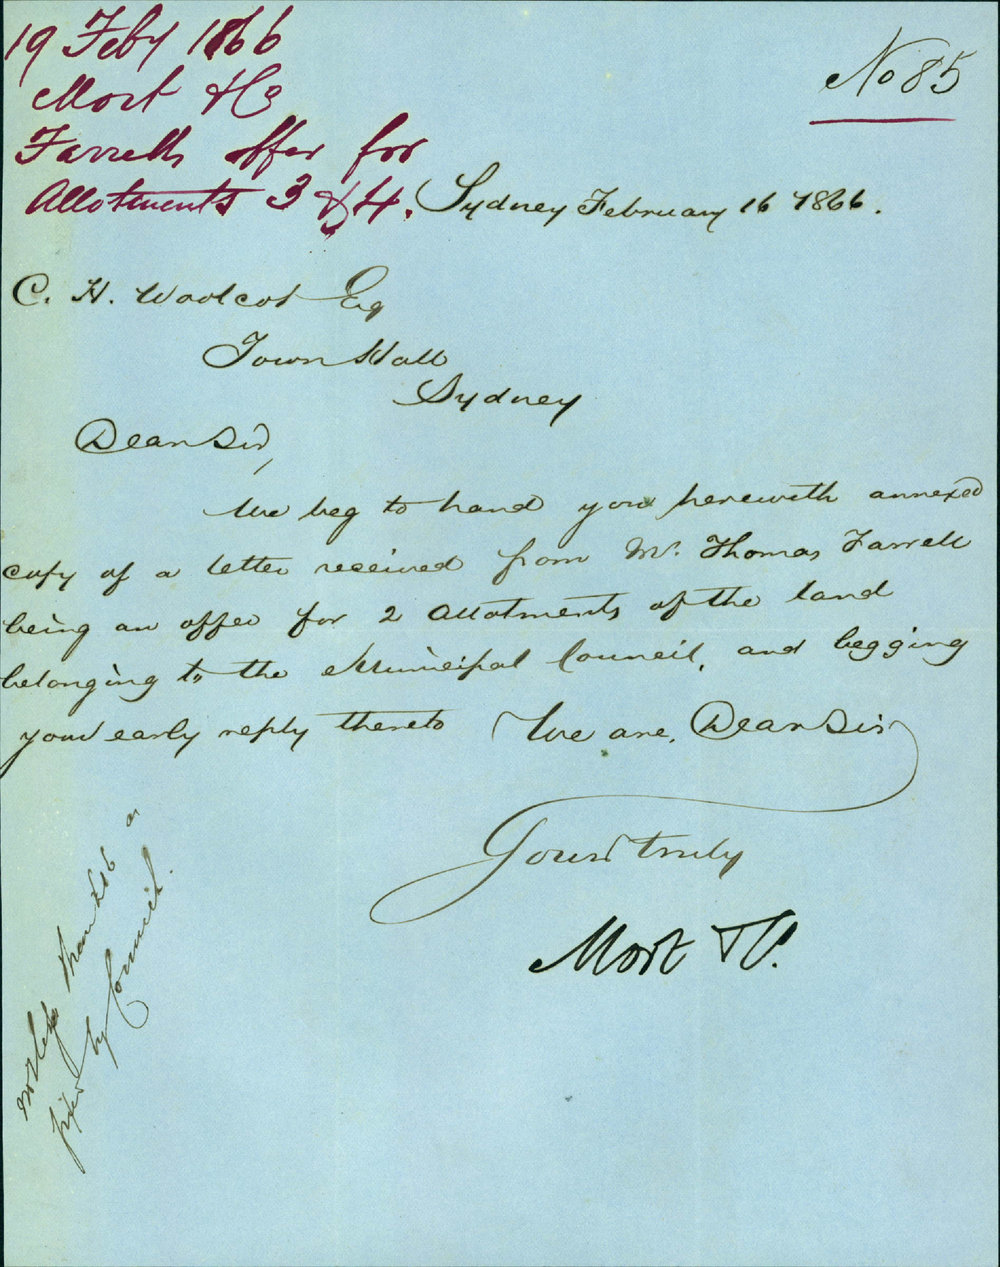 19 Feby 1866
Mort & Co
Farrells offer for
Allotments 3 & 4.
No 85
Sydney February 16 1866.
C. H. Woolcot Esq
Town Hall
Sydney
Dear Sir,
We beg to hand you herewith annexed
copy of a letter received from Mr. Thomas Farrell
being an offer for 2 allotments of the land
belonging to the Municipal Council, and begging
your early reply thereto We are, Dear Sir
Yours truly
Mort & Co.
not less than £16 as
fixed by Council.